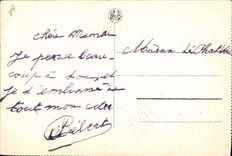 chère Maman
je pense beau-
coup à vous et
je t'embrasse de
tout mon cœur
Bébert
Madame